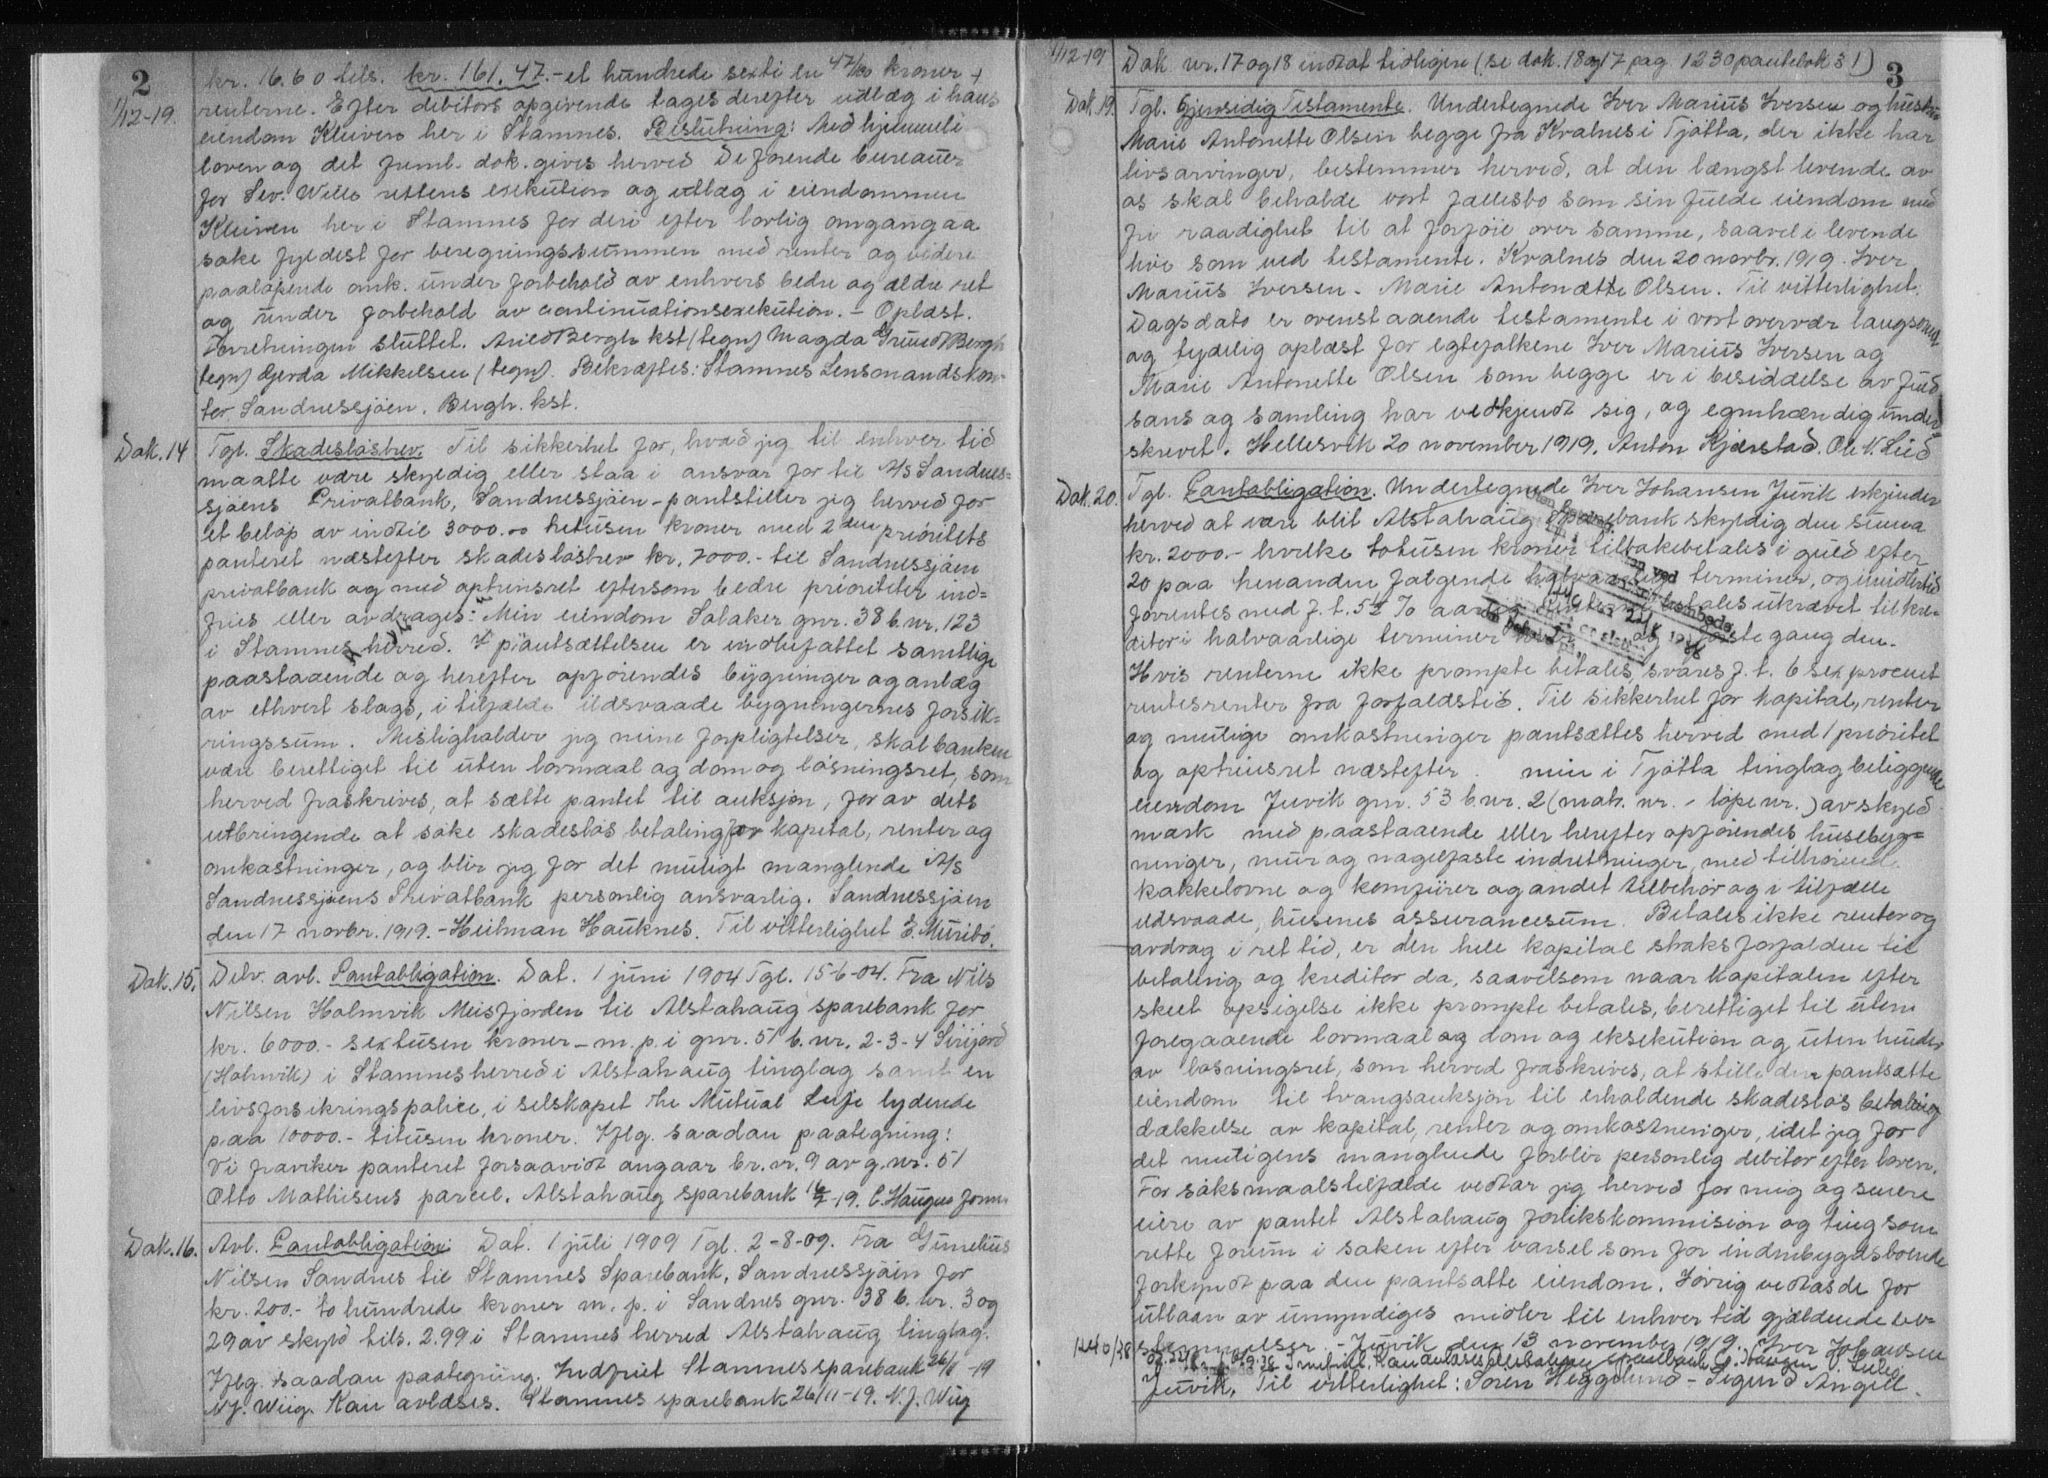 2
1/12-19.
kr. 16.60 tils. kr. 161.47.- et hundrede sexti en 47/100 kroner +
renterne. Efter debitors opgivende tages derefter utlæg i hans
eiendom Kleiven her i Stamnes. Beslutning: Med hjemmel i
loven og det fremb. dok. gives herved De forende bureauer
for Sev. Wells rettens exekution og utlæg i eiendommen
Kleiven her i Stamnes for deri efter lovlig omgang aa
søke fyldest for beregningssummen med renter og videre
paaløpende omk. under forbehold av enhvers bedre og ældre ret
og under forbehold av continuationsexekution. - Oplæst.
Forretningen sluttet. Aried Bergh kst (tegn) Magda Bergh
(tegn) Gerda Mikkelsen (tegn). Bekræftes: Stamnes Lensmandskon-
tor Sandnessjøen. Bergh. kst.
Dok. 14
Tgl. Skadesløsbrev. Til sikkerhet for, hvad jeg til enhver tid
maatte være skyldig eller staa i ansvar for til A/S Sandnes-
sjøens Privatbank, Sandnessjøen - pantstiller jeg herved for
et beløp av indtil 3000.00 tretusen kroner med 2den prioritets
panteret næstefter skadesløsbrev kr. 7000.- til Sandnessjøen
privatbank og med optrinsret eftersom bedre prioriteter ind=
fries eller avdrages: Min eiendom Solaker gnr. 38 b. nr. 123
i Stamnes herred. I pantsættelsen er indbefattet samtlige
paastaaende og herefter opførendes bygninger og anlæg
av ethvert slags, i tilfælde ildsvaade bygningernes forsik-
ringssum. Misligholder jeg mine forpligtelser, skal banken
være berettiget til uten lovmaal og dom og løsningsret, som
herved fraskrives, at sætte pantet til auksjon, for av dets
utbringende at søke skadesløs betaling for kapital, renter og
omkostninger, og blir jeg for det muligt manglende A/S
Sandnessjøens Privatbank personlig ansvarlig. Sandnessjøen
den 17 novbr. 1919. - Heitman Hauknes. Til vitterlighet E. Muribø.
Dok. 15.
Delv. avl. Pantobligation. Dat. 1 juni 1904 Tgl. 15-6-04. Fra Nils
Nilsen Holmvik Meisfjorden til Alstahaug sparebank for
kr. 6000.- sextusen kroner - m. p. i gnr. 51 b. nr. 2-3-4 Sirijord
(Holmvik) i Stamnes herred i Alstahaug tinglag samt en
livsforsikringspolice, i selskapet the Mutual Life lydende
paa 10000.- titusen kroner. Iflg. saadan paategning:
Vi fraviker panteret forsaavidt angaar br. nr. 9 av g. nr. 51
Otto Mathisens parcel. Alstahaug sparebank 16/7-19. C. Haugen form.
Dok. 16.
Avl. Pantobligation: Dat. 1 juli 1909 Tgl. 2-8-09. Fra Gunelius
Nilsen Sandnes til Stamnes Sparebank, Sandnessjøen for
kr. 200.- to hundrede kroner m. p. i Sandnes gnr. 38 b. nr. 3 og
29 av skyld tils. 2.99 i Stamnes herred Alstahaug tinglag.
Iflg. saadan paategning. Indfriet Stamnes sparebank 26/11-19
N. J. Wiig. Kan avlæses. Stamnes sparebank 26/11-19. N. J. Wiig
3
1/12-19
Dok nr. 17 og 18 indtat tidligere (se dok. 18 og 17 pag 1230 pantebok 31)
Dok. 19.
Tgl. Gjensidig Testamente. Undertegnede Iver Marius Iversen og hustru
Marie Antonette Olsen begge fra Kvalnes i Tjøtta, der ikke har
livsarvinger, bestemmer herved, at den længst levende av
os skal beholde vort fællesbo som sin fulde eiendom med
fri raadighet til at forføie over samme, saavel i levende
live som ved testamente. Kvalnes den 20 novbr. 1919. Iver
Marius Iversen - Marie Antonætte Olsen. Til vitterlighet.
Dagsdato er ovenstaaende testamente i vort overvær langsomt
og tydelig oplæst for egtefolkene Iver Marius Iversen og
Marie Antonette Olsen som begge er i besiddelse av fuld
sans og samling har vedkjendt sig, og egenhændig under-
skrevet. Hellesvik 20 november 1919. Anton Kjærstad. Ole N. Lud
Dok. 20.
Tgl. Pantobligation. Undertegnede Iver Johansen Juvik erkjender
herved at være blit Alstahaug Sparebank skyldig den summa
kr. 2000.- hvilke totusen kroner tilbakebetales i guld efter
20 paa hinanden følgende halvaarlige terminer, og imidlertid
forrentes med f. t. 5½ % aarlig renter betales ukrævet til kre-
ditor i halvaarlige terminer hver og første gang den.
Hvis renterne ikke prompte betales, svares f. t. 6 sex procent
rentesrenter fra forfaldstid. Til sikkerhet for kapital, renter
og mulige omkostninger pantsættes herved med 1 prioritet
og optrinsret næstefter . min i Tjøtta tinglag beliggende
eiendom Juvik gnr. 53 b nr. 2 (mat. nr. - løpe nr. ) av skyld
mark med paastaaende eller herefter opførendes husebyg=
ninger, mur og nagelfaste indretninger, med tilhørende
kakkelovne og komfurer og andet tilbehør og i tilfælde
ildsvaade, husenes assurancesum. Betales ikke renter og
avdrag i ret tid, er den hele kapital straks forfalden til
betaling og kreditor da, saavelsom naar kapitalen efter
skeet opsigelse ikke prompte betales, berettiget til uten
foregaaende lovmaal og dom og eksekution og uten hinder
av løsningsret, som herved fraskrives, at stille den pantsatte
eiendom til tvangsauksjon til erholdende skadesløs betaling
dækkelse av kapital, renter og omkostninger, idet jeg for
det muligens manglende forblir personlig debitor efter loven.
For søksmaalstilfælde vedtar jeg herved for mig og senere
eiere av pantet Alstahaug forlikskommision og ting som
rette forum i saken efter varsel som for indenbygdsboende
forkyndt paa den pantsatte eiendom. Iøvrig vedtas de for
utlaan av umyndiges midler til enhver tid gjældende be-
stemmelser. - Juvik den 13 november 1919. Iver Johansen
1240/38
Juvik. Til vitterlighet: Søren Heggelund - Sigurd Angell.